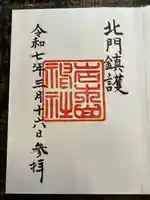 北門鎮護
令和七年三月十六日参拝